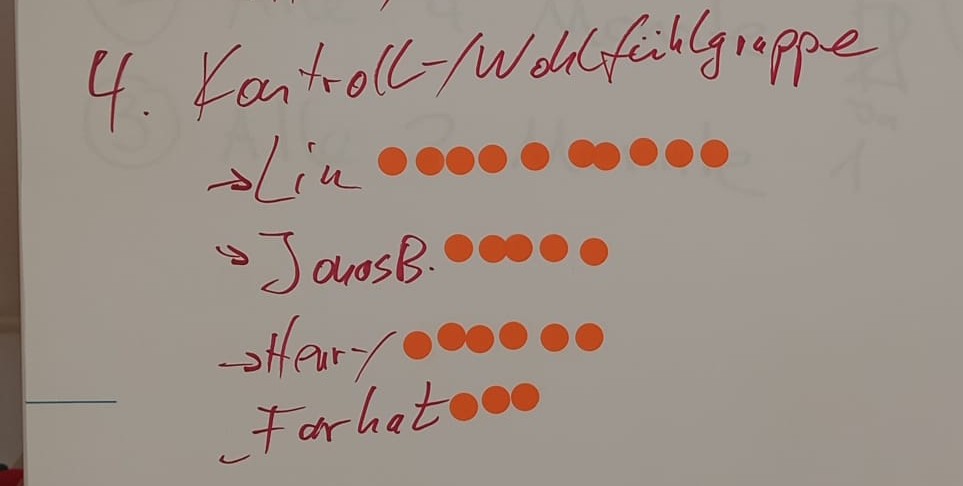 4. Kontroll-/Wohlfühlgruppe
→ Lin
→ Jonas B.
→ Henry
Farhat